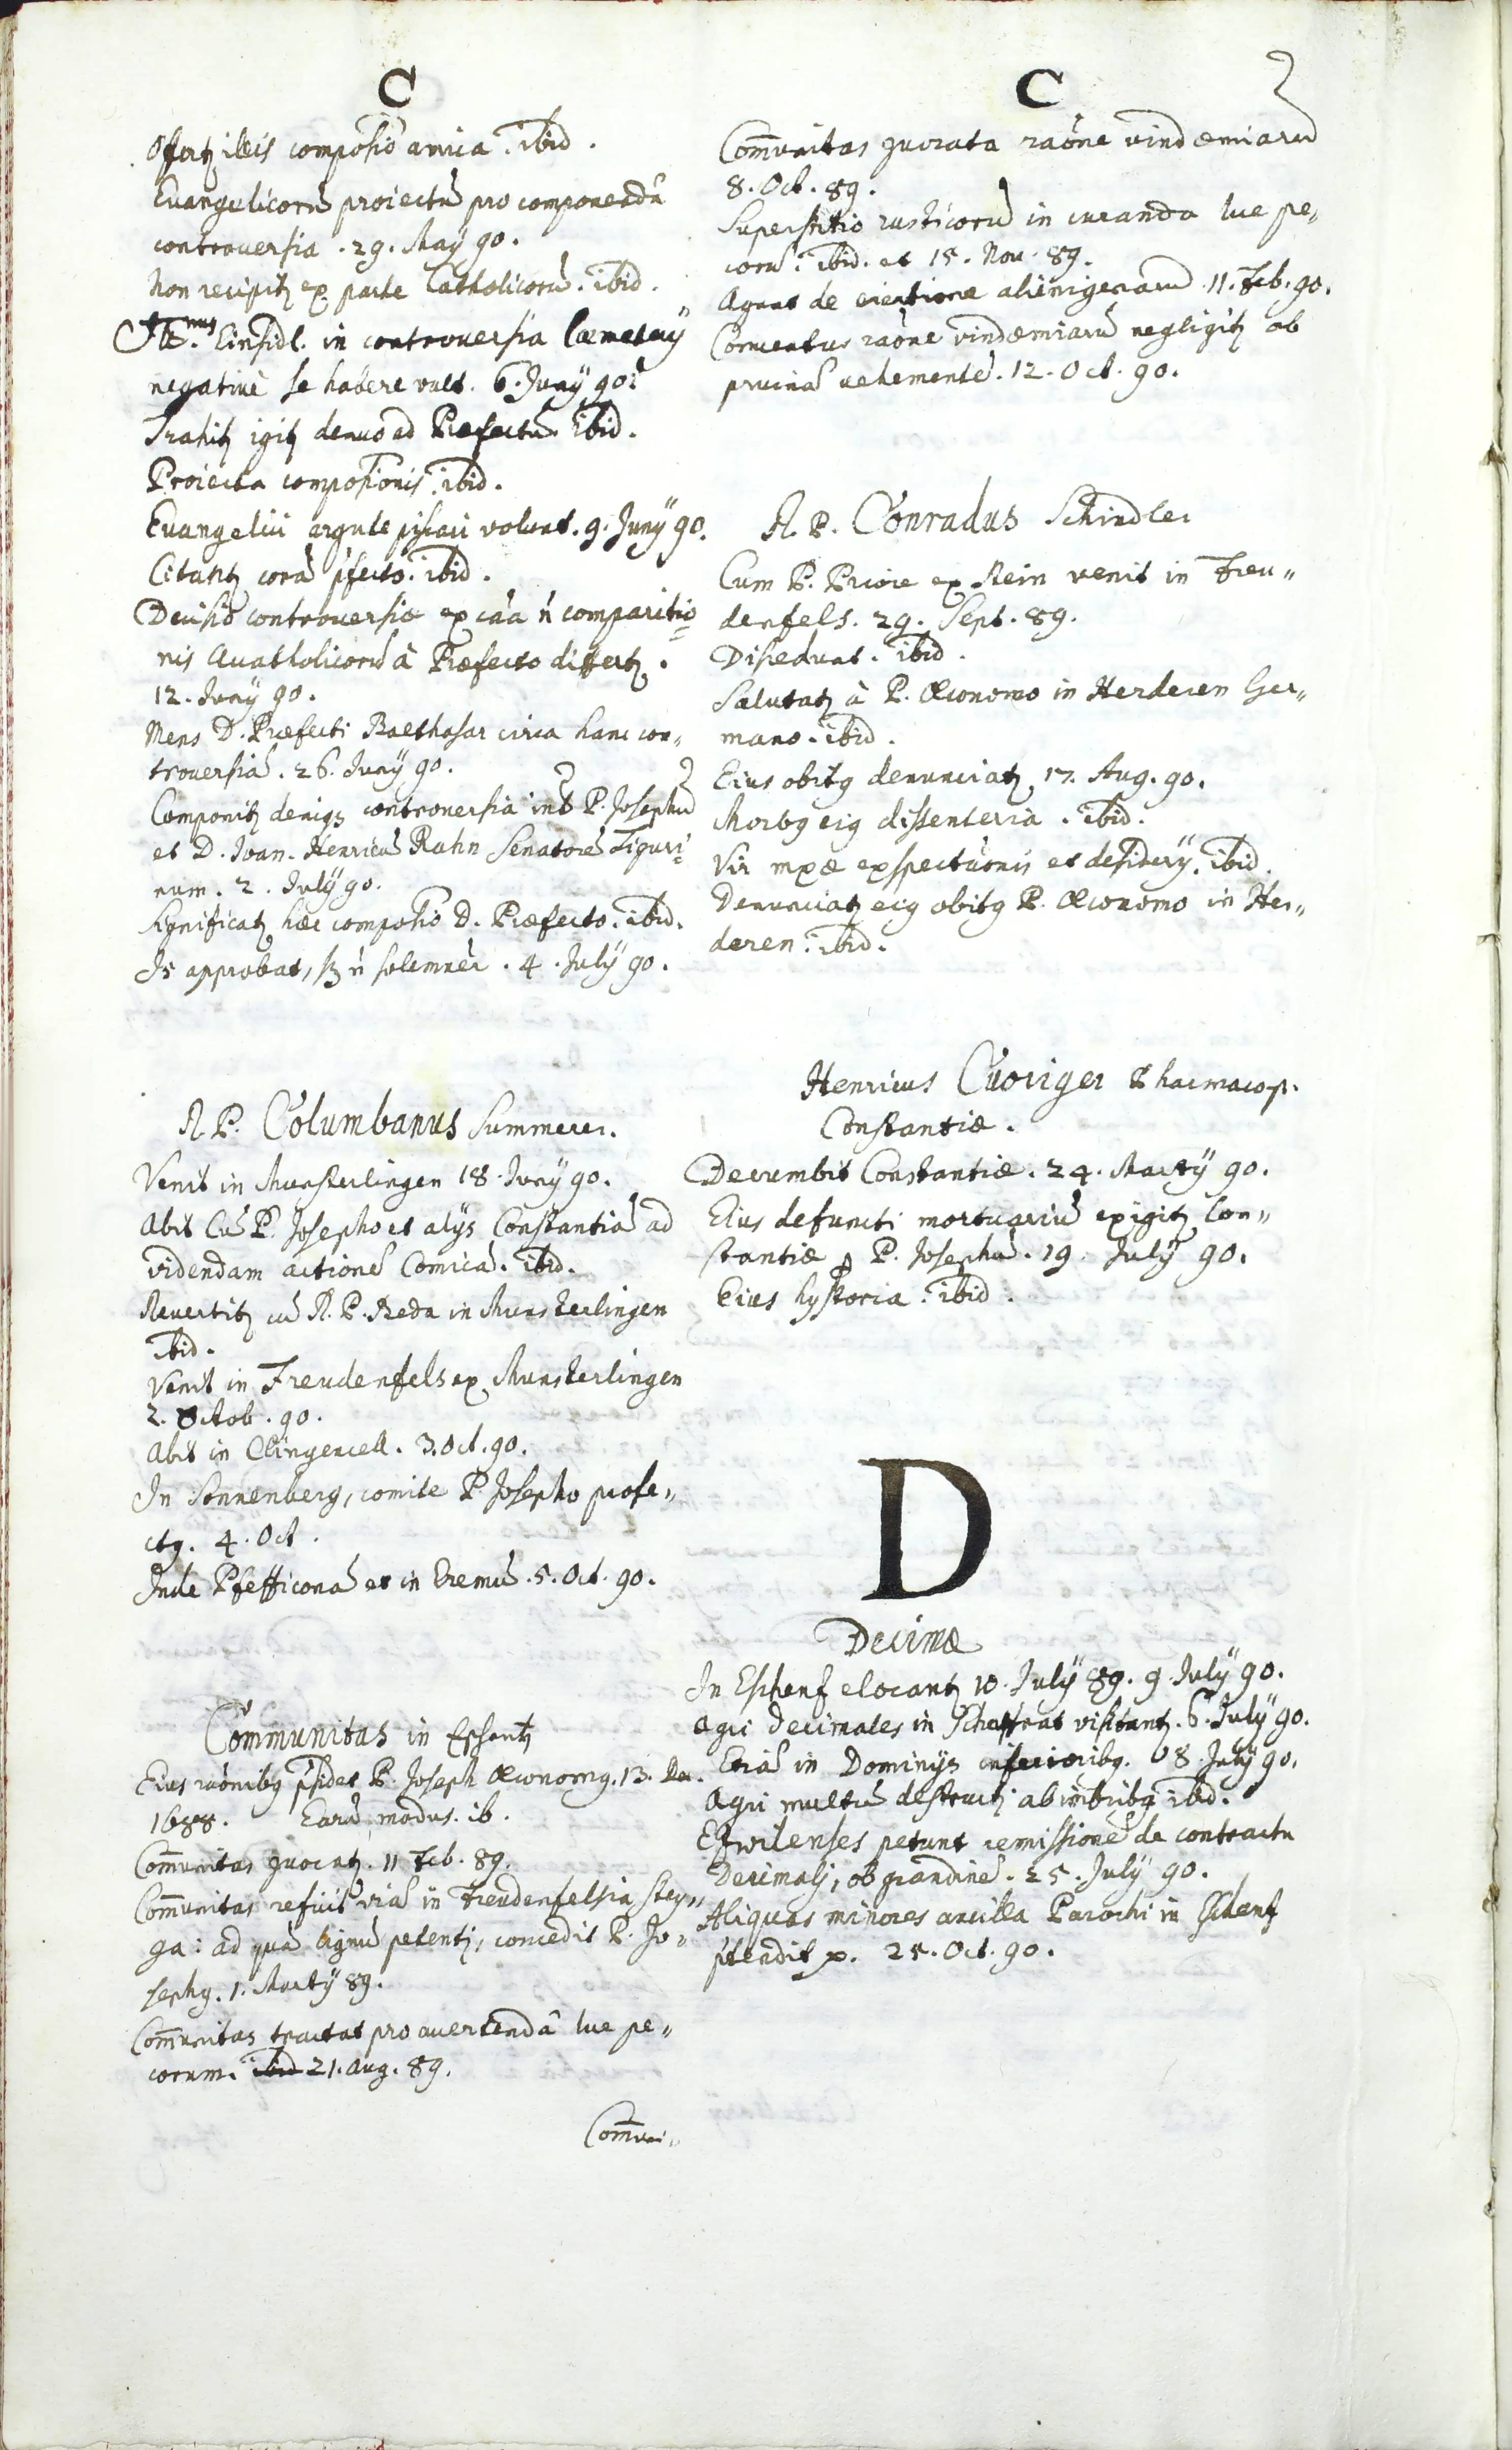 C
Offertꝫ illis compositio amica. ibid.
Evangelicorũ proiectũ pro componendâ
controversia. 29. Maÿ 90.
Non recipitꝫ ex parte Catholicorũ. ibid.
Einsidl. in controversia Cœmeterÿ
negativè se habere vult. 6. Junÿ 90.
Trahitꝫ igitꝫ denuò ad Præfectũ. ibid.
Proiecta compositionis. ibid.
Evangelici argute piscari volunt. 9. Junÿ 90.
Citantꝫ corã p̃fecto. ibid.
Decisio controversiæ ex cãa ñ comparitio=
nis Acatholicorũ à Præfecto differtꝫ.
12. Junÿ 90.
Mens D. Præfecti Balthasar circa hanc con„
troversiã. 26. Junÿ 90.
Componitꝫ deniqꝫ controversia int̃ P. Josephũ
et D. Joan. Henricũ Rahn Senatorẽ Tiguri=
num. 2. Julÿ 90.
Significatꝫ hæc compositio D. Præfecto. ibid.
Is approbat, sꝫ ñ solemnèr. 4. Julÿ 90.
R. P. Columbanus Summerer.
Venit in Munsterlingen 18. Junÿ 90.
Abit Cũ P. Josepho et alÿs Constantiã ad
videndam actionẽ Comicã. ibid.
Revertitꝫ cũ R. P. Beda in Munsterlingen
ibid.
Venit in Freudenfels ex Munsterlingen
2. Octob. 90.
Abit in Clingencell. 3. Oct. 90.
In Sonnenberg, comite P. Josepho profe„
ctꝯ. 4. Oct.
Inde Pfefficonã et in Eremũ. 5. Oct. 90.
Cõmunitas in Eschentꝫ
Eius raõnibꝯ p̃sidet P. Joseph Œconomꝯ. 13. Dec.
1688. Earũ modus. ib.
Com̃unitas quocatꝫ. 11 Feb. 89.
Com̃unitas reficit viã in Freudenfelsia Stey„
ga: ad quã lignũ petentj, concedit P. Jo„
sephꝯ. 1. Martÿ 89.
Com̃unitas tractat pro avertendâ lue pe„
corum. ibid 21. Aug. 89.
Com̃uni„
C
Com̃unitas quocata raõne vindemiarũ
8. Oct. 89.
Superstitio rusticorũ in curanda lue pe„
corũ. ibid. et 15. Nov. 89.
Agunt de eiectione alienigenarũ 11. Feb. 90.
Conventus raõne vindemiarũ negligitꝫ ob
pruinas vehementẽ. 12. Oct. 90.
R. P. Conradus Schindler
Cum P. Priore ex Rein venit in Freu„
denfels. 29. Sept. 89.
Discedunt. ibid.
Salutatꝫ à P. Œconomo in Herderen Ger„
mano. ibid.
Eius obitꝯ denunciatꝫ 17. Aug. 90.
Morbꝯ eiꝯ dissenteria. ibid.
Vir mg̃æ exspectãonis et desiderÿ. ibid.
Denunciatꝫ eiꝯ obitꝯ P. Œconomo in Her„
deren. ibid.
Henricus Cuoriger Pharmacop.
Constantiæ.
Decumbit Constantiæ. 24. Martÿ 90.
Eius defuncti mortuariũ exigitꝫ Con„
stantiæ ꝑ P. Josephũ. 19. Julÿ 90.
Eius hystoria. ibid.
D
Decimæ
In Eschenf elocantꝫ 10. Julÿ 89. 9. Julÿ 90.
Agri Decimales in visitantꝫ. 6. Julÿ 90.
Etiã in Dominÿs inferioribꝯ. 8. Julÿ 90.
Agri multũ destructi ab imbribꝯ ibid.
petunt remissionẽ de contractu
Decimalj, ob grandinẽ. 25. Julÿ 90.
Aliquas minores ancilla Parochi in Eschenf
p̃tendit. 25. Oct. 90.